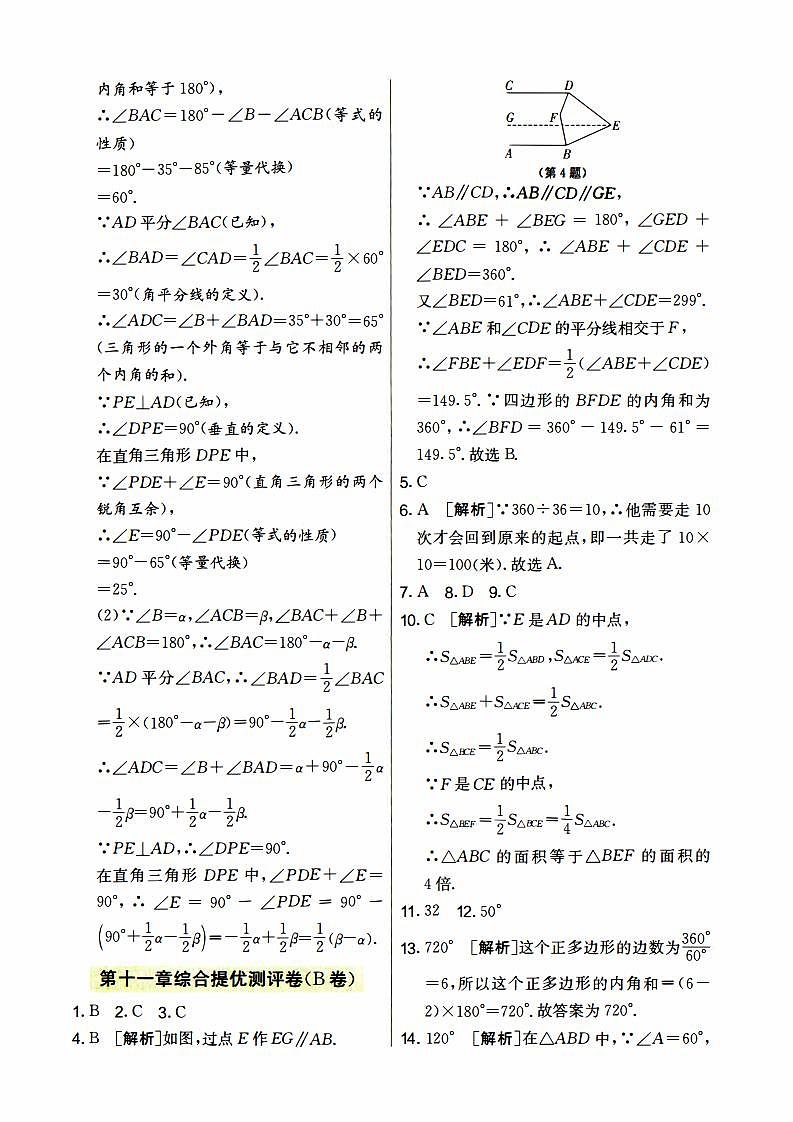 内角和等于180°),
∴∠BAC=180°-∠B-∠ACB(等式的
性质)
=180°-35°-85°(等量代换)
=60°.
∵AD平分∠BAC(已知),
∴∠BAD=∠CAD=1/2∠BAC=1/2×60°
=30°(角平分线的定义).
∴∠ADC=∠B+∠BAD=35°+30°=65°
(三角形的一个外角等于与它不相邻的两
个内角的和).
∵PE⊥AD(已知),
∴∠DPE=90°(垂直的定义).
在直角三角形DPE中,
∵∠PDE+∠E=90°(直角三角形的两个
锐角互余),
∴∠E=90°-∠PDE(等式的性质)
=90°-65°(等量代换)
=25°.
(2)∵∠B=α,∠ACB=β,∠BAC+∠B+
∠ACB=180°,∴∠BAC=180°-α-β.
∵AD平分∠BAC,∴∠BAD=1/2∠BAC
=1/2×(180°-α-β)=90°-1/2α-1/2β.
∴∠ADC=∠B+∠BAD=α+90°-1/2α
-1/2β=90°+1/2α-1/2β.
∵PE⊥AD,∴∠DPE=90°.
在直角三角形DPE中,∠PDE+∠E=
90°,∴∠E=90°-∠PDE=90°-
(90°+1/2α-1/2β)=-1/2α+1/2β=1/2(β-α).
第十一章综合提优测评卷(B卷)
1. B 2. C 3. C
4. B [解析]如图,过点E作EG∥AB.
C D
G F E
A B
(第4题)
∵AB∥CD,∴AB∥CD∥GE,
∴∠ABE+∠BEG=180°,∠GED+
∠EDC=180°,∴∠ABE+∠CDE+
∠BED=360°.
又∠BED=61°,∴∠ABE+∠CDE=299°.
∵∠ABE和∠CDE的平分线相交于F,
∴∠FBE+∠EDF=1/2(∠ABE+∠CDE)
=149.5°.∵四边形的BFDE的内角和为
360°,∴∠BFD=360°-149.5°-61°=
149.5°.故选B.
5. C
6. A [解析]∵360÷36=10,∴他需要走10
次才会回到原来的起点,即一共走了10×
10=100(米).故选A.
7. A 8. D 9. C
10. C [解析]∵E是AD的中点,
∴S△ABE=1/2S△ABD,S△ACE=1/2S△ADC.
∴S△ABE+S△ACE=1/2S△ABC.
∴S△BCE=1/2S△ABC.
∵F是CE的中点,
∴S△BEF=1/2S△BCE=1/4S△ABC.
∴△ABC的面积等于△BEF的面积的
4倍.
11. 32 12. 50°
13. 720° [解析]这个正多边形的边数为360°/60°
=6,所以这个正多边形的内角和=(6-
2)×180°=720°.故答案为720°.
14. 120° [解析]在△ABD中,∵∠A=60°,